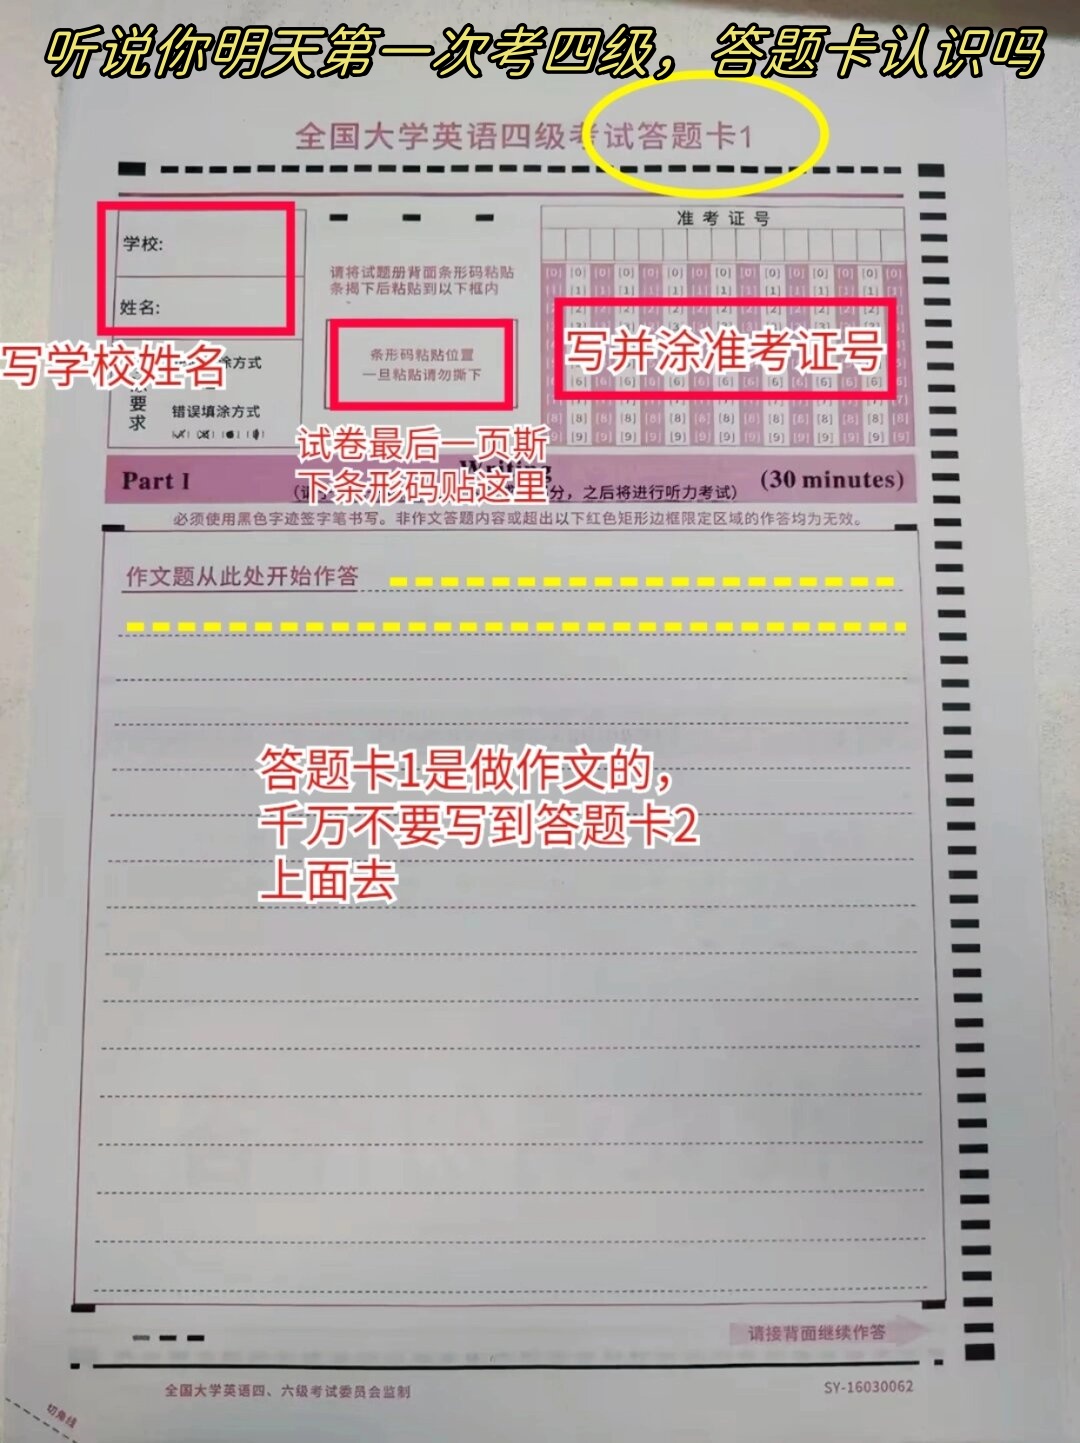 听说你明天第一次考四级，答题卡认识吗
全国大学英语四级考试答题卡1
学校:
姓名:
写学校姓名
涂方式
要求
错误填涂方式
请将试题册背面条形码粘贴
条揭下后粘贴到以下框内
条形码粘贴位置
一旦粘贴请勿撕下
试卷最后一页斯
下条形码贴这里
准考证号
[0] [0] [0] [0] [0] [0] [0] [0] [0] [0] [0] [0] [0] [0] [0]
写并涂准考证号
[8] [8] [8] [8] [8] [8] [8] [8] [8] [8] [8] [8] [8] [8] [8]
[9] [9] [9] [9] [9] [9] [9] [9] [9] [9] [9] [9] [9] [9] [9]
Part I
Writing
(30 minutes)
分，之后将进行听力考试）
必须使用黑色字迹签字笔书写。非作文答题内容或超出以下红色矩形边框限定区域的作答均为无效。
作文题从此处开始作答
答题卡1是做作文的，
千万不要写到答题卡2
上面去
请接背面继续作答
全国大学英语四、六级考试委员会监制
SY-16030062
切角线